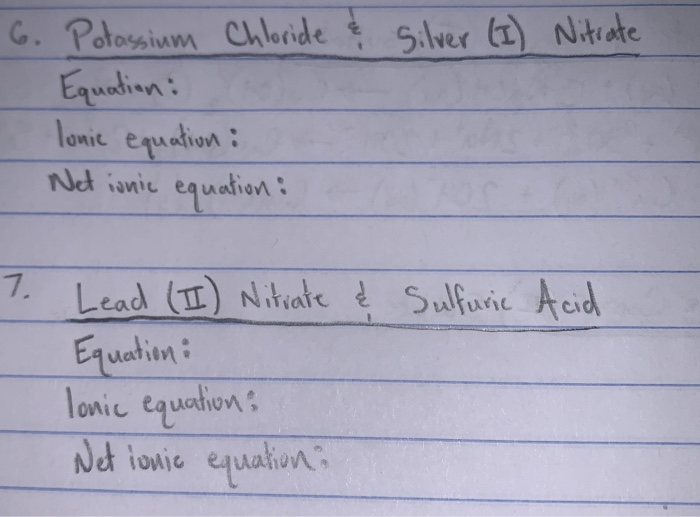 6. Potassium Chloride & Silver (I) Nitrate
Equation:
Ionic equation:
Net ionic equation:
7. Lead (II) Nitrate & Sulfuric Acid
Equation:
Ionic equation:
Net ionic equation: